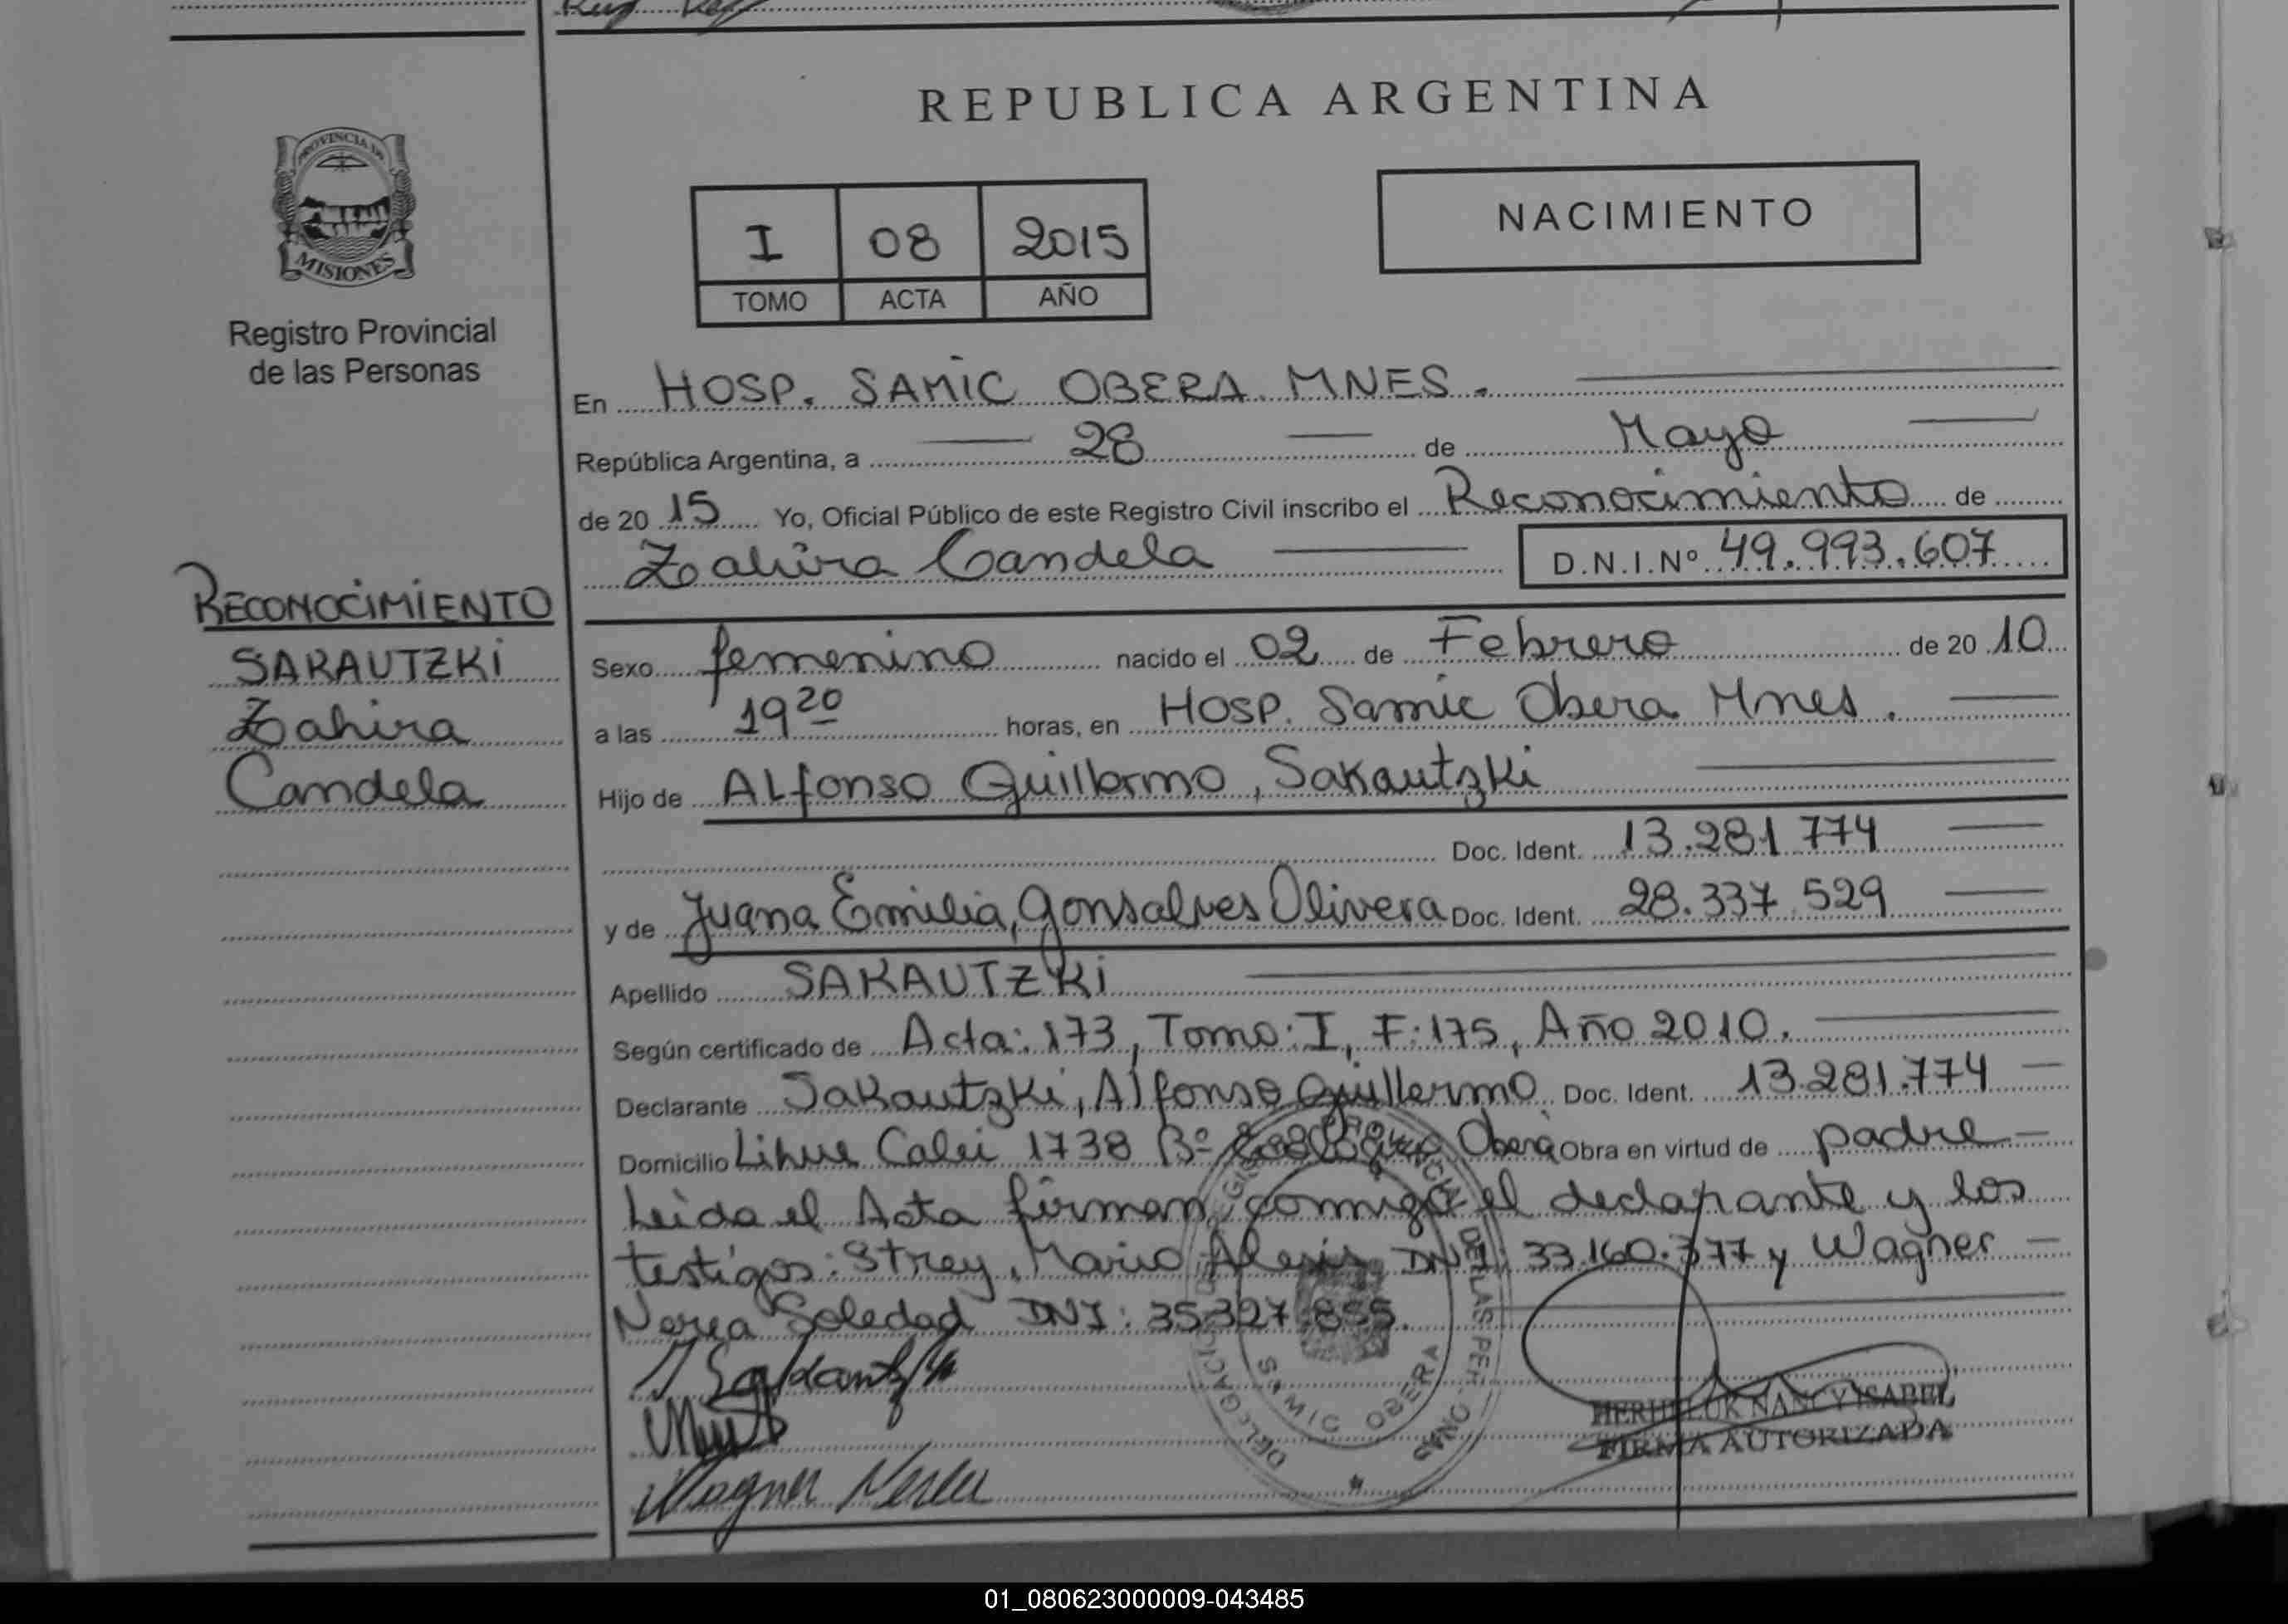 REPUBLICA ARGENTINA
PROVINCIA DE
MISIONES
Registro Provincial
de las Personas
I 08 2015
TOMO ACTA AÑO
NACIMIENTO
En HOSP. SAMIC OBERA MNES.
República Argentina, a 28 de Mayo
de 2015 Yo, Oficial Público de este Registro Civil inscribo el Reconocimiento de
Zahira Candela D.N.I.Nº 49.993.607
RECONOCIMIENTO
SAKAUTZKI
Zahira
Candela
Sexo femenino nacido el 02 de Febrero de 2010
a las 19 20 horas, en Hosp. Samic Obera Mnes.
Hijo de Alfonso Guillermo, Sakautzki
Doc. Ident. 13.281 774
y de Juana Emilia, Gonsalves Olivera Doc. Ident. 28.337.529
Apellido SAKAUTZKi
Según certificado de Acta: 173, Tomo: I, F: 175, Año 2010.
Declarante Sakautzki, Alfonso Guillermo Doc. Ident. 13.281.774
Domicilio Lihue Calei 1738 Bº Oberá Obra en virtud de padre
Leida el Acta firman conmigo el declarante y los
testigos: Strey, Mario Alexis DNI: 33.160.377 y Wagner
Nerea Soledad DNI: 35327.855.
DELEGACION REGISTRO PROVINCIAL DE LAS PER
SAMIC OBERA
Wagner Nerea
NANCY ISABEL
FIRMA AUTORIZADA
01_080623000009-043485